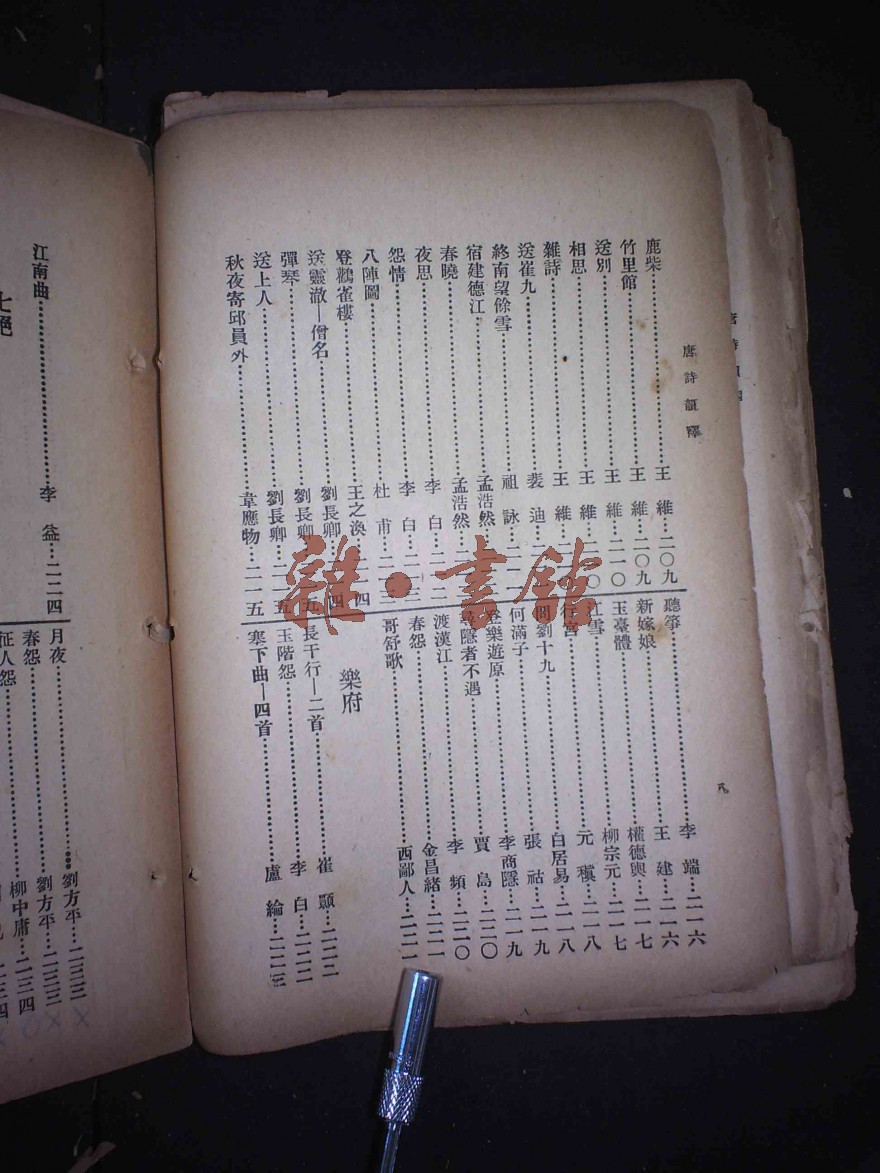 唐詩韻釋
鹿柴……王維…二〇九
竹里館……王維…二〇九
送別……王維…二一〇
相思……王維…〇
雜詩……王維
送崔九……裴迪…二
終南望餘雪……祖詠…二
宿建德江……孟浩然…二
春曉……孟浩然…二
夜思……李白…二一二
怨情……李白…二一三
八陣圖……杜甫…二一三
登鸛雀樓……王之渙…二一四
送靈澈—僧名……劉長卿…四
彈琴……劉長卿…五
送上人……劉長卿…二一五
秋夜寄邱員外……韋應物…二一五
聽箏……李端…二一六
新嫁娘……王建…二一六
玉臺體……權德輿…二一七
江雪……柳宗元…二一七
行宮……元稹…二一八
問劉十九……白居易…二一八
何滿子……張祜…二一九
登樂遊原……李商隱…二一九
尋隱者不遇……賈島…二二〇
渡漢江……李頻…二二〇
春怨……金昌緒…二二一
哥舒歌……西鄙人…二二一
樂府
長干行—二首……崔顥…二二二
玉階怨……李白…二二二
塞下曲—四首……盧綸…二二三
江南曲……李益…二二四
七絕
月夜……劉方平…二三三
春怨……劉方平…二三三
征人怨……柳中庸…二三四
雜·書館